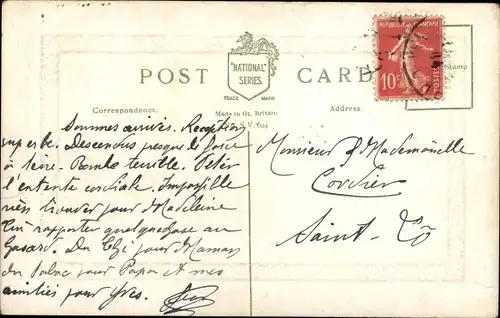 POST CARD
"NATIONAL"
SERIES.
TRADE MARK
Correspondence.
Made in Gt. Britain
Address.
Stamp
REPUBLIQUE FRANÇAISE
10c
POSTES
Sommes arrivés. Réception
superbe. Descendus presque de force
à terre. Bombe terrible. Fêter
l'entente cordiale. Impossible
rien trouver pour Madeleine
rapporter quelquechose au
hasard. Du thé pour Maman
du tabac pour Papa et mes
amitiés pour Yves.
Monsieur & Mademoiselle
Cordier
Saint-Lô